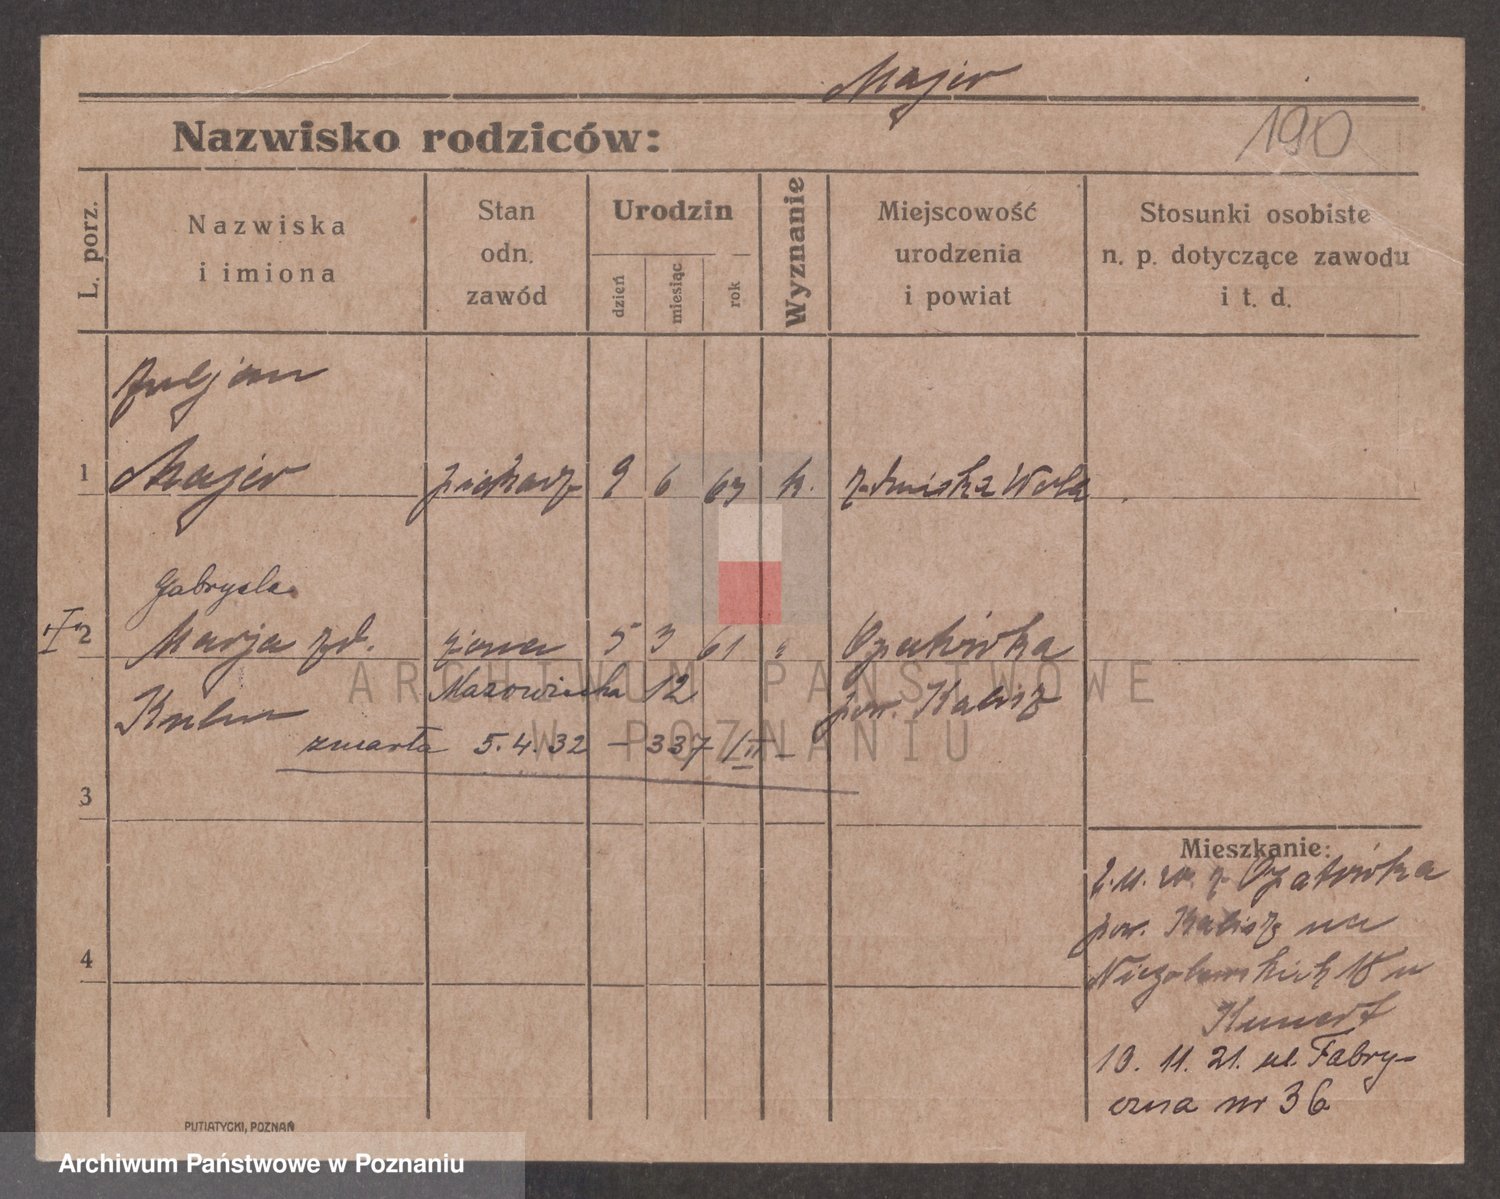 Majer
190
Nazwisko rodziców:
L. porz.
Nazwiska
i imiona
Stan
odn.
zawód
Urodzin
dzień
miesiąc
rok
Wyznanie
Miejscowość
urodzenia
i powiat
Stosunki osobiste
n. p. dotyczące zawodu
i t. d.
Juljan
1 Majer piekarz 9 6 63 k. Zduńska Wola
Gabryela
"I" 2 Marja zd. żona 5 3 61 " Opatówka
Mazowiecka 12 pow. Kalisz
zmarła 5.4.32 – 337/III –
3
Mieszkanie:
z Opatówka
pow. Kalisz na
4
Niegolewskich 18 u
Kunert
13. 11. 21. ul. Fabry-
czna nr 36
PUTIATYCKI, POZNAŃ
ARCHIWUM PAŃSTWOWE
W POZNANIU
Archiwum Państwowe w Poznaniu